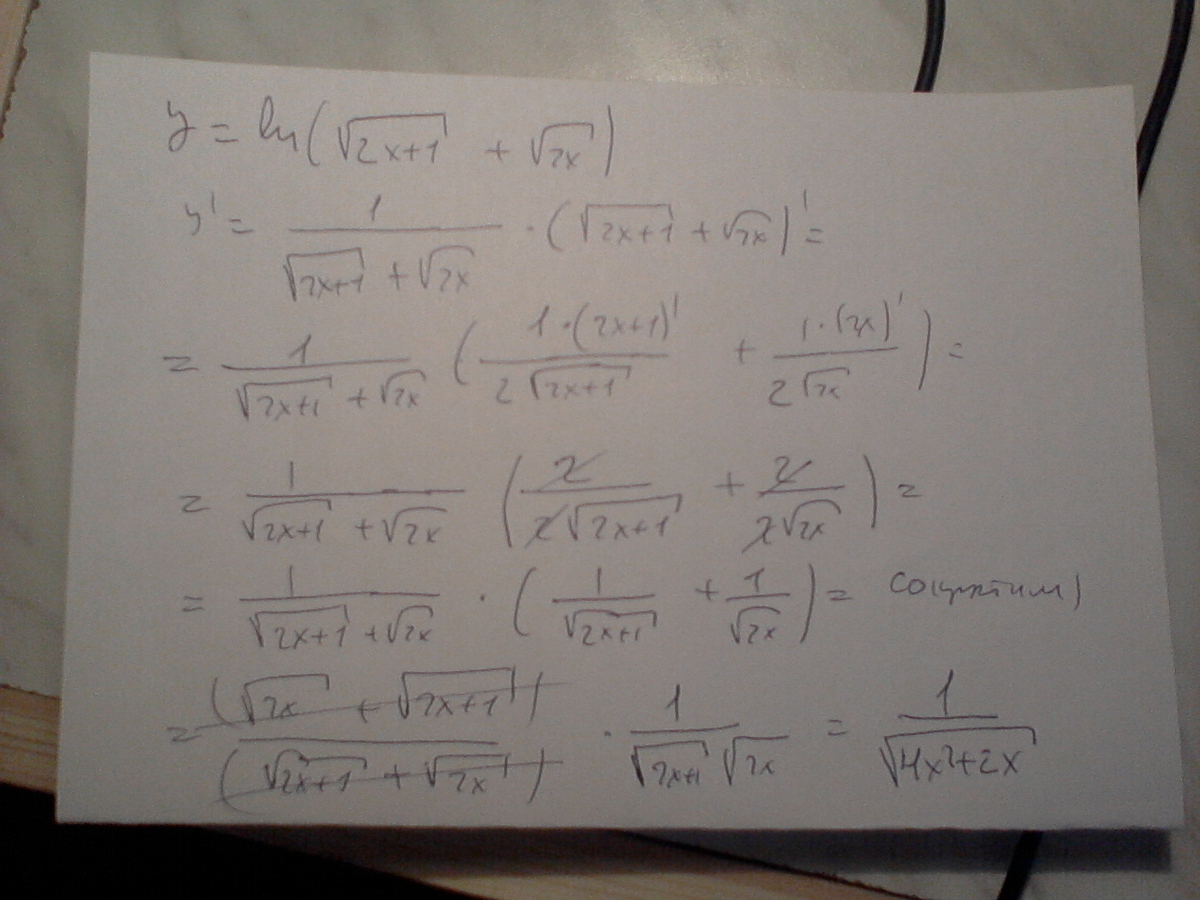 y = ln(√2x+1 + √2x)
y' = 1/(√2x+1 + √2x) · (√2x+1 + √2x)' =
= 1/(√2x+1 + √2x) (1·(2x+1)'/(2√2x+1) + 1·(2x)'/(2√2x)) =
= 1/(√2x+1 + √2x) (2/(2√2x+1) + 2/(2√2x)) =
= 1/(√2x+1 + √2x) · (1/√2x+1 + 1/√2x) = сократим)
= (√2x + √2x+1)/(√2x+1 + √2x) · 1/(√2x+1 √2x) = 1/√4x²+2x